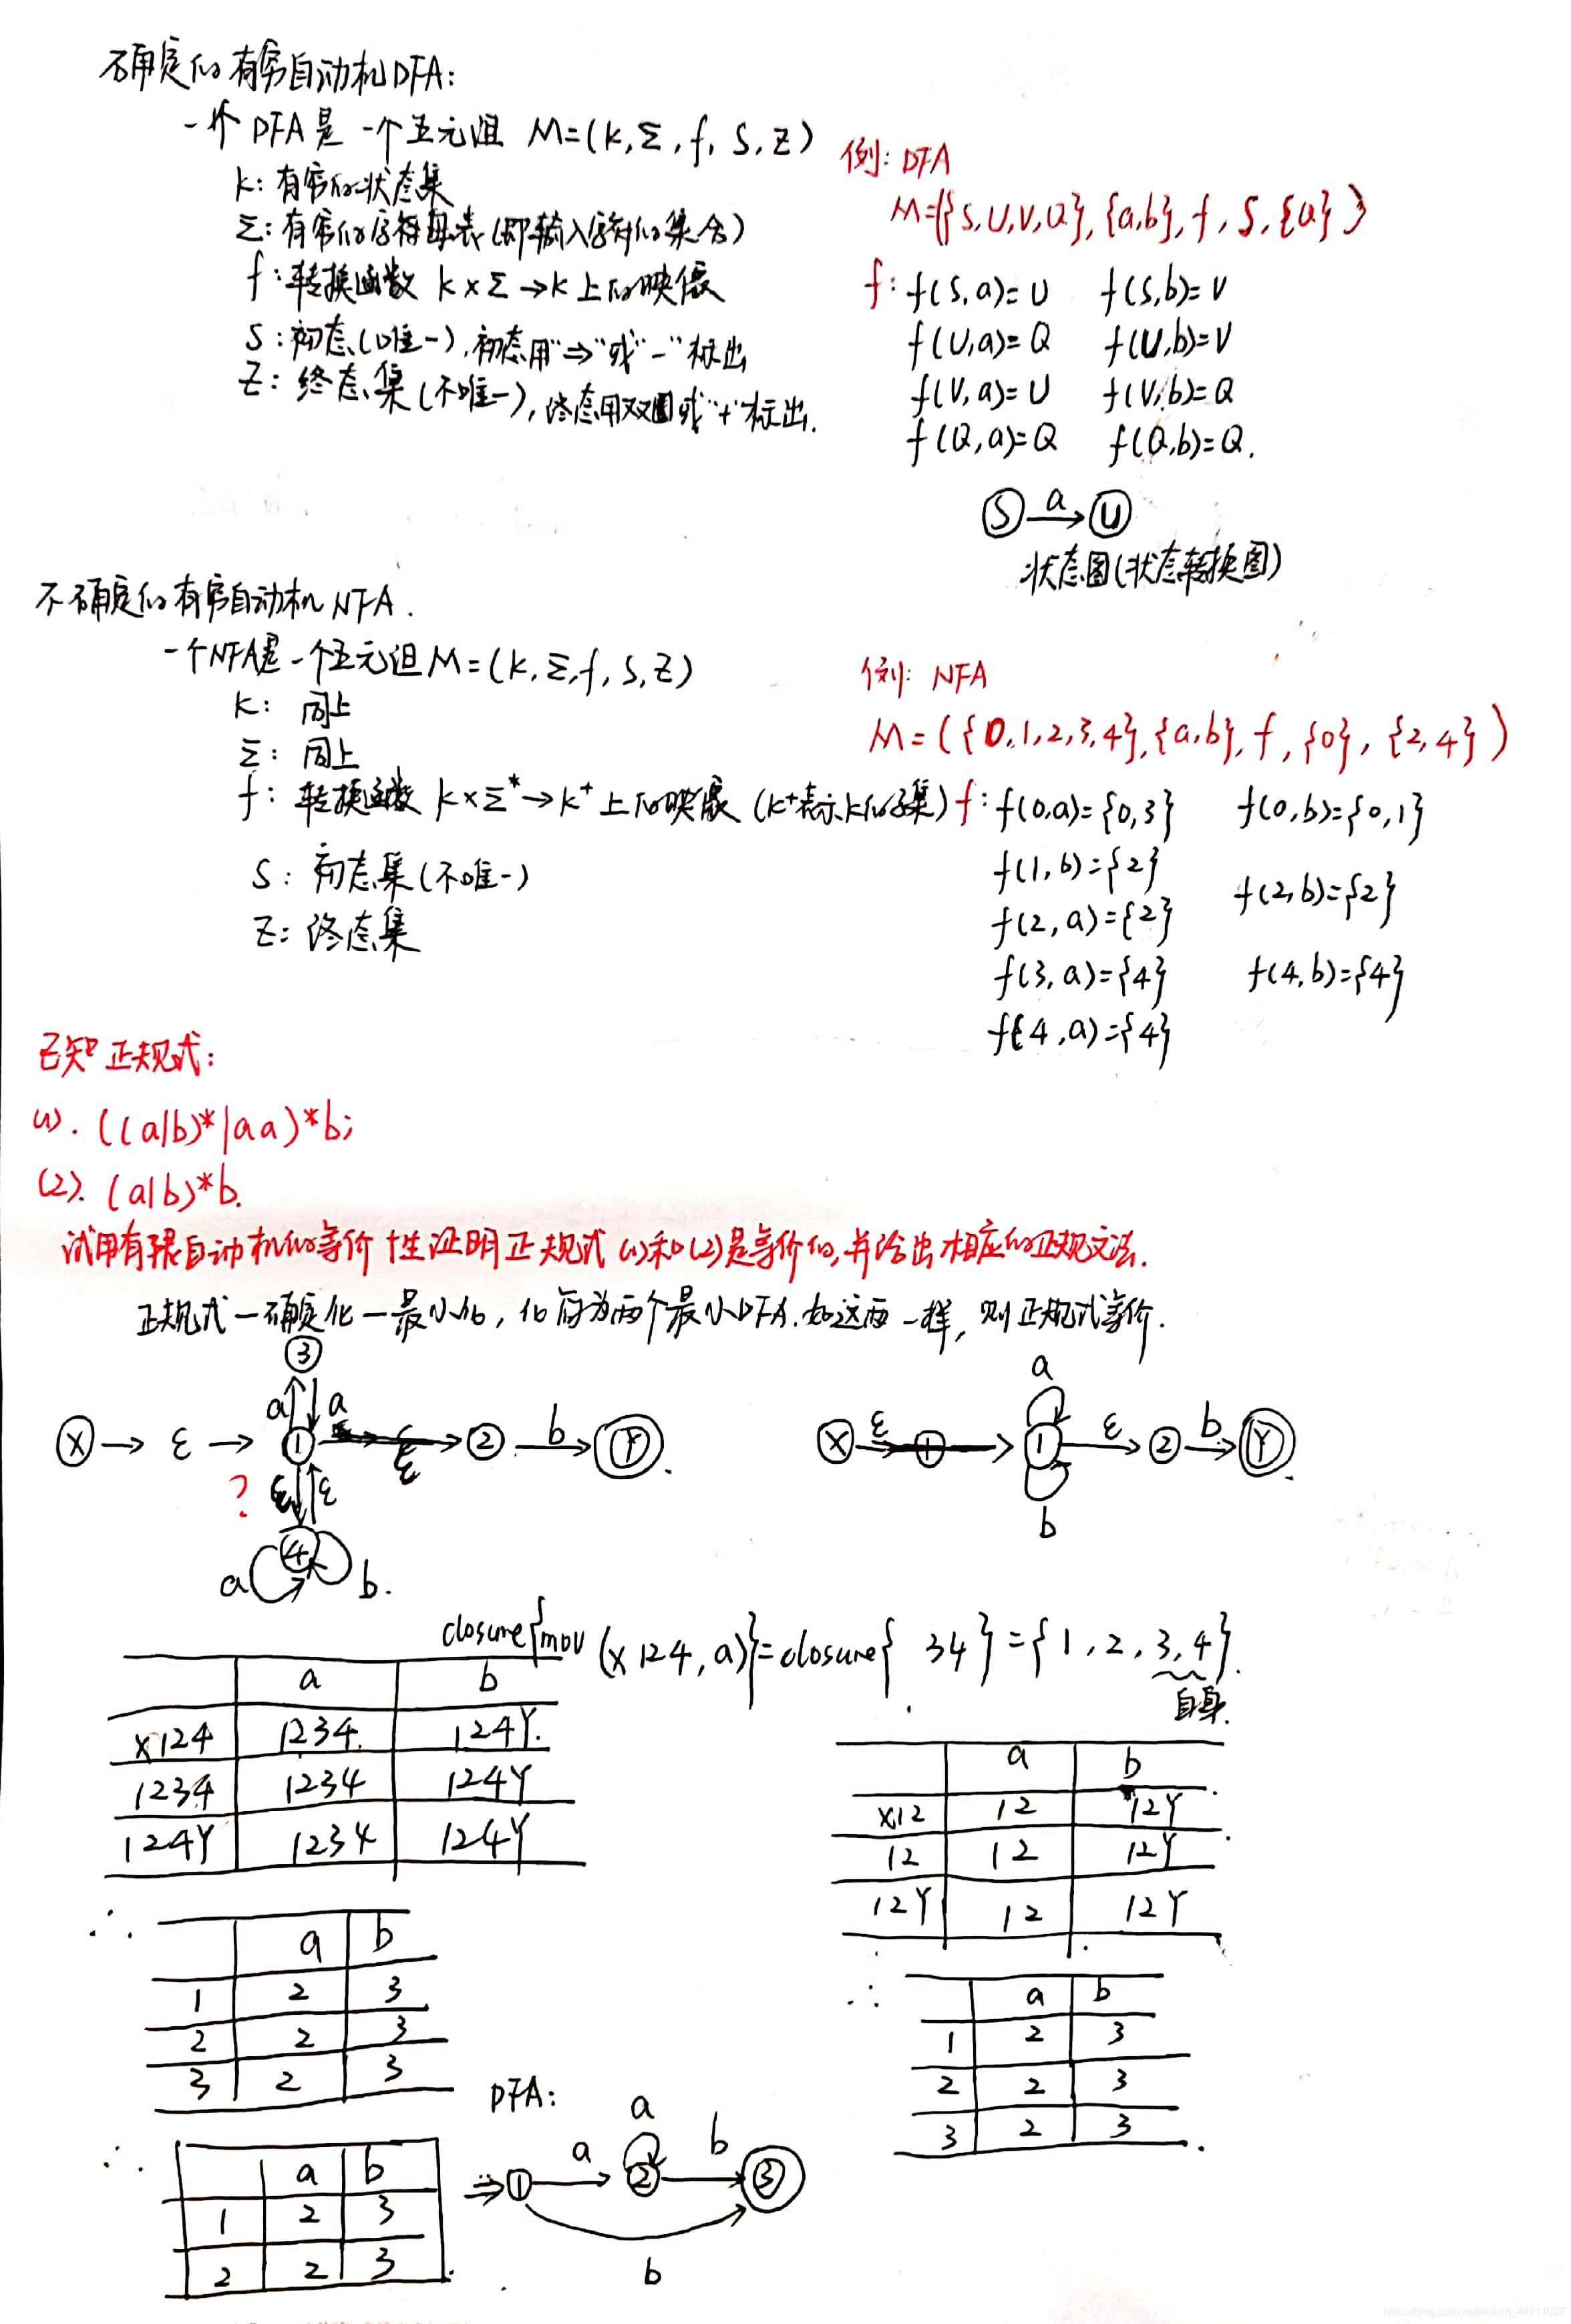 确定的有穷自动机DFA:
一个DFA是一个五元组 M=(K,Σ,f,S,Z)
K: 有穷的状态集
Σ: 有穷的字符母表(即输入字符的集合)
f: 转换函数 K×Σ→K上的映像
S: 初态(唯一),初态用"⇒"或"-"标出
Z: 终态集(不唯一),终态用双圈或"+"标出.
例: DFA
M=({S,U,V,Q},{a,b},f,S,{Q})
f: f(S,a)=U f(S,b)=V
f(U,a)=Q f(U,b)=V
f(V,a)=U f(V,b)=Q
f(Q,a)=Q f(Q,b)=Q.
S a U
状态图(状态转换图)
不确定的有穷自动机NFA.
一个NFA是一个五元组M=(K,Σ,f,S,Z)
K: 同上
Σ: 同上
f: 转换函数 K×Σ*→K⁺上的映像 (K⁺表示K的子集)
S: 初态集(不唯一)
Z: 终态集
例: NFA
M=({0,1,2,3,4},{a,b},f,{0},{2,4})
f: f(0,a)={0,3} f(0,b)={0,1}
f(1,b)={2}
f(2,a)={2} f(2,b)={2}
f(3,a)={4} f(4,b)={4}
f(4,a)={4}
已知正规式:
(1). ((a|b)*|aa)*b;
(2). (a|b)*b.
试用有限自动机的等价性证明正规式(1)和(2)是等价的,并给出相应的正规文法.
正规式—确定化—最小化, 化简为两个最小DFA.如这两一样, 则正规式等价.
3
a a
X → ε → 1 ε 2 b Y.
? ε ε
4
a b.
a
X ε 1 1 ε 2 b Y.
b
closure{mov(X124,a)}=closure{ 34}={1,2,3,4}.
自身.
a b
X124 1234. 124Y.
1234 1234 124Y
124Y 1234 124Y
a b
X12 12 12Y
12 12 12Y
12Y 12 12Y
∴ a b
1 2 3
2 2 3
3 2 3
∴ a b
1 2 3
2 2 3
3 2 3
∴ a b
1 2 3
2 2 3
DFA:
a
⇒ 1 a 2 b 3
b
https://blog.csdn.net/weixin_44711037